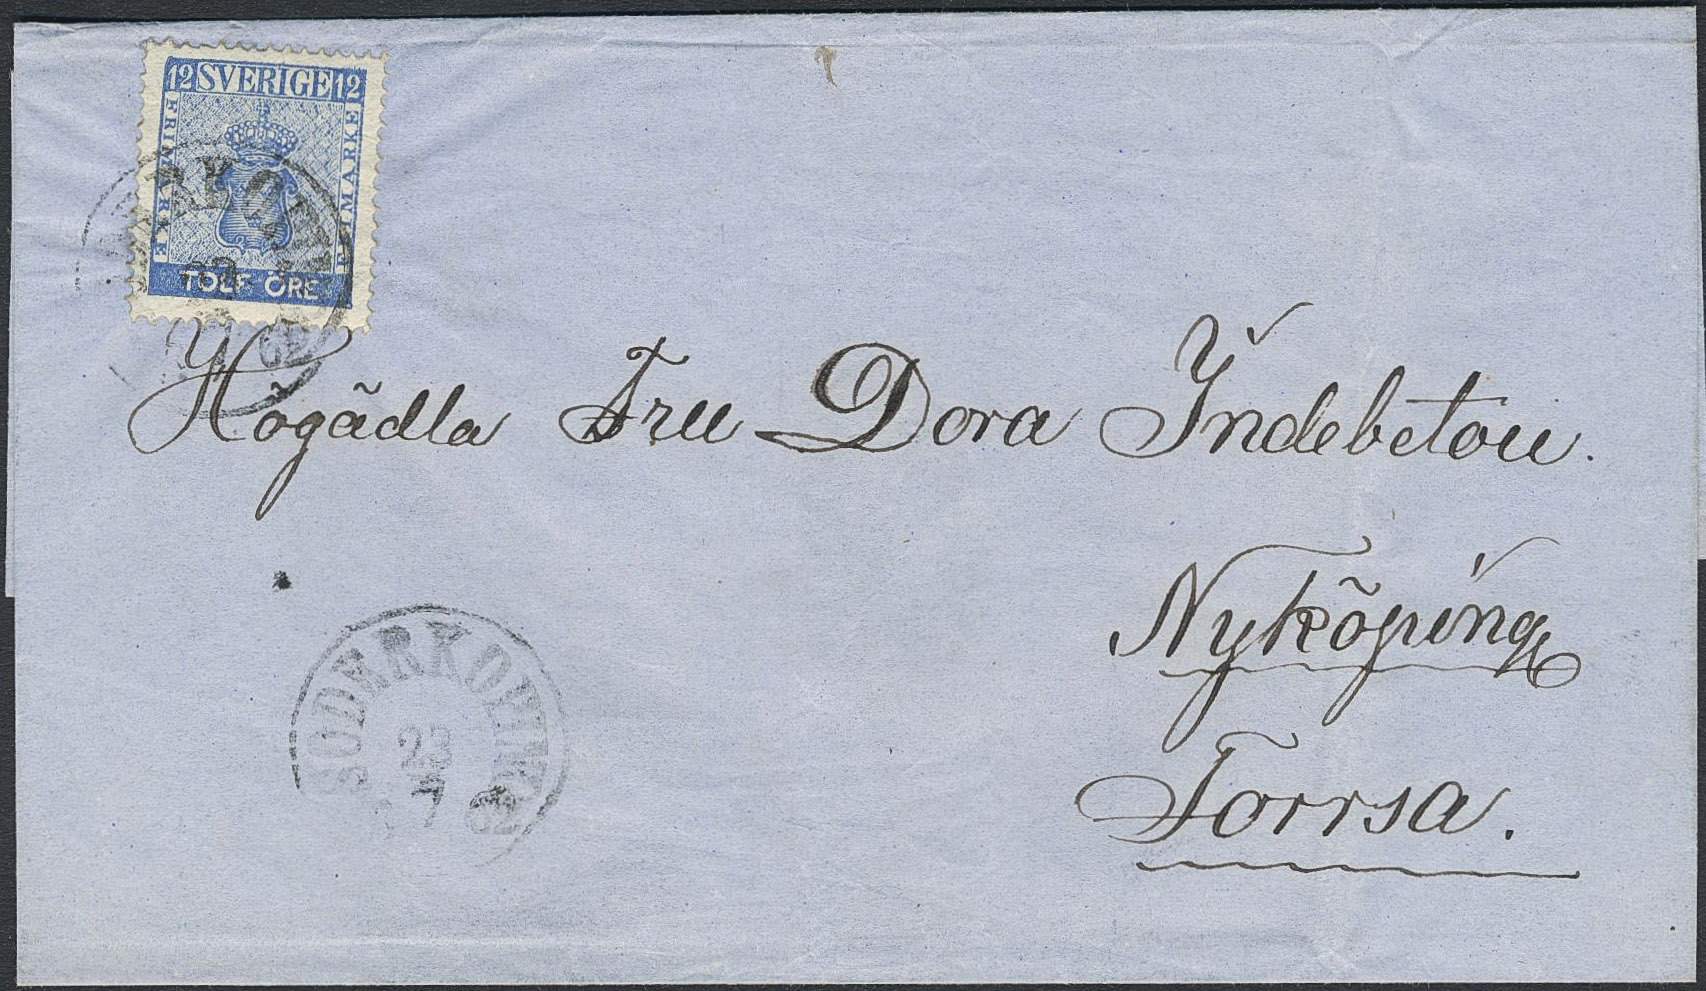 12 SVERIGE 12
FRIMÄRKE
FRIMÄRKE
TOLF ÖRE
Högädla Fru Dora Indebetou.
Nyköping
Torrsa.
SÖDERKÖPING
23
7
62